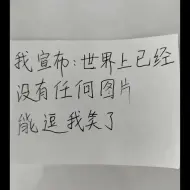 我宣布:世界上已经
没有任何图片
能逗我笑了